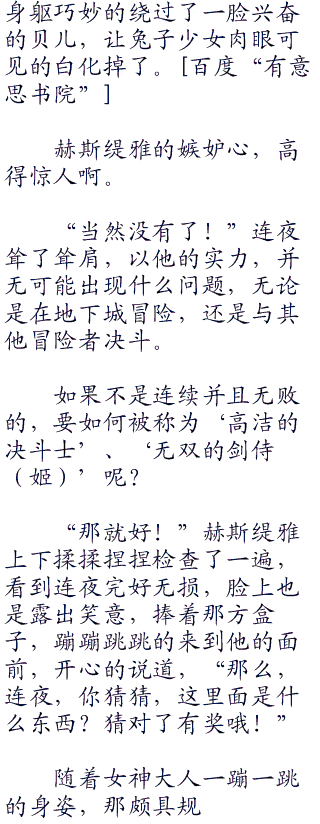 身躯巧妙的绕过了一脸兴奋
的贝儿，让兔子少女肉眼可
见的白化掉了。[百度“有意
思书院”]
赫斯缇雅的嫉妒心，高
得惊人啊。
“当然没有了！”连夜
耸了耸肩，以他的实力，并
无可能出现什么问题，无论
是在地下城冒险，还是与其
他冒险者决斗。
如果不是连续并且无败
的，要如何被称为‘高洁的
决斗士’、‘无双的剑侍
（姬）’呢？
“那就好！”赫斯缇雅
上下揉揉捏捏检查了一遍，
看到连夜完好无损，脸上也
是露出笑意，捧着那方盒
子，蹦蹦跳跳的来到他的面
前，开心的说道，“那么，
连夜，你猜猜，这里面是什
么东西？猜对了有奖哦！”
随着女神大人一蹦一跳
的身姿，那颇具规